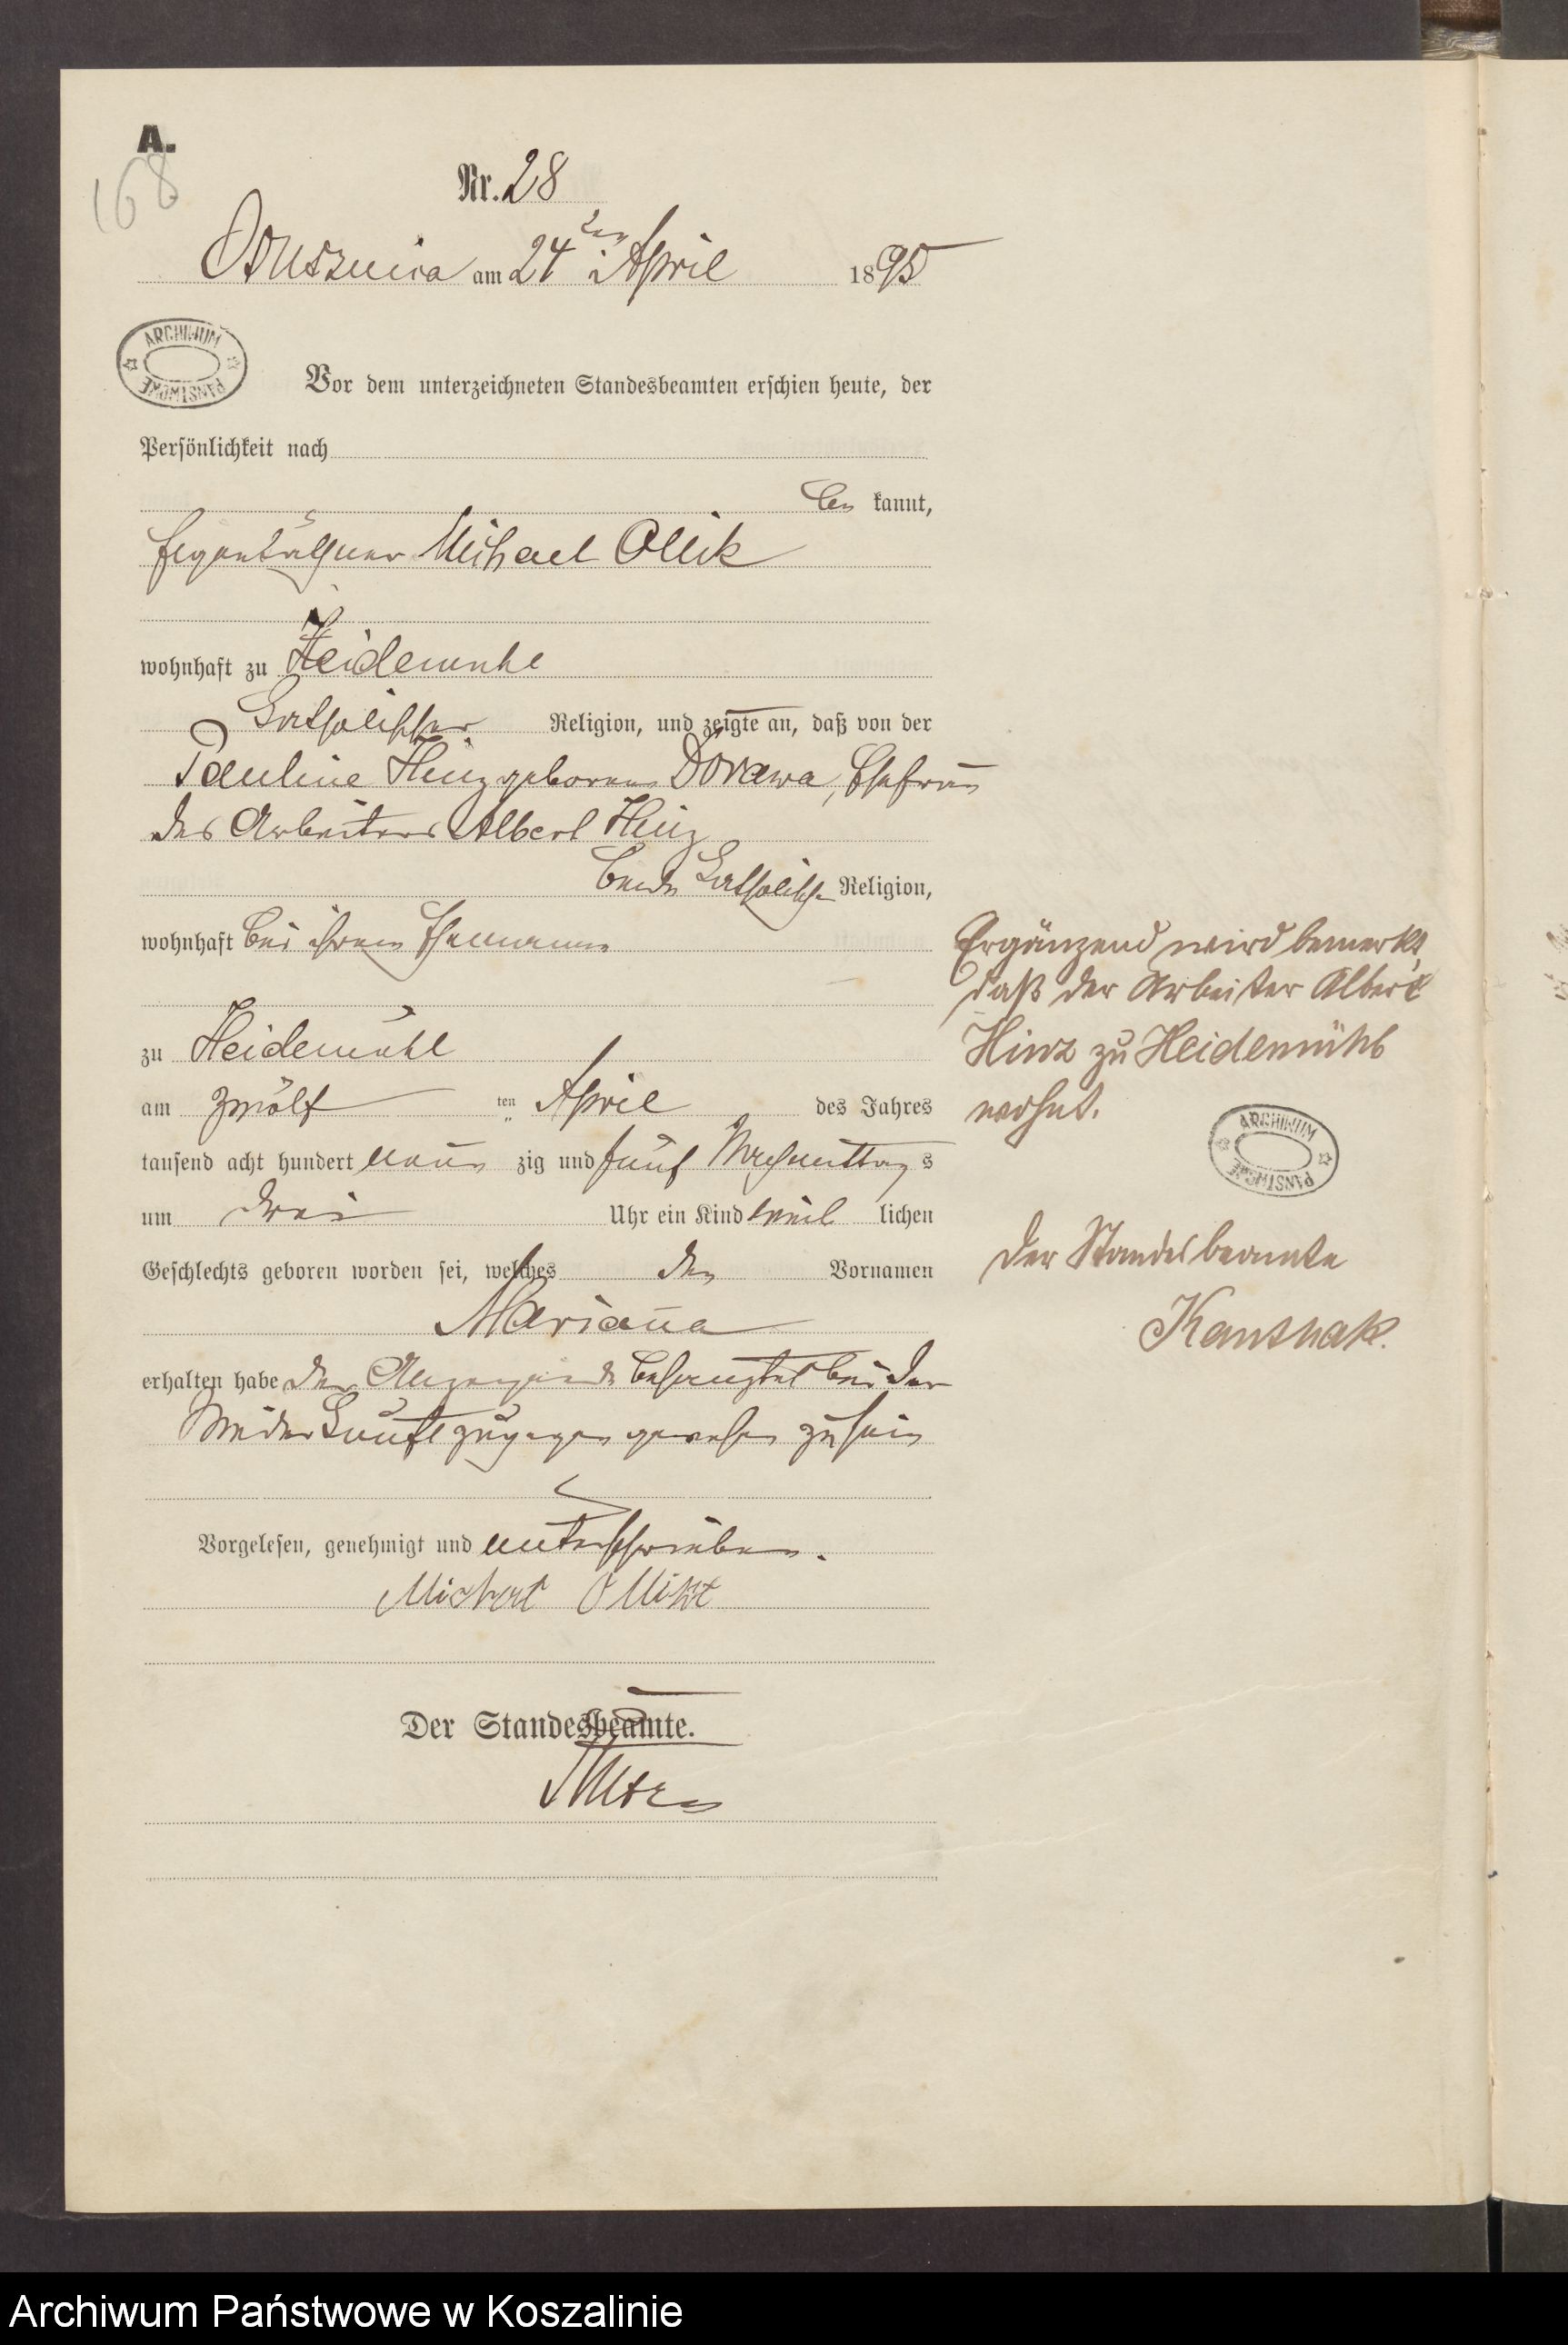 A.
168
Nr. 28
Ossusznica am 24ten April 1895
ARCHIWUM PAŃSTWOWE
Vor dem unterzeichneten Standesbeamten erschien heute, der
Persönlichkeit nach
be kannt,
Eigenthümer Michael Ollik
wohnhaft zu Heidemuhl
katholischer Religion, und zeigte an, daß von der
Pauline Hinz geborenen Dorawa, Ehefrau
des Arbeiters Albert Hinz
beide katholischer Religion,
wohnhaft bei ihrem Ehemanne
zu Heidemühl
am zwölf ten April des Jahres
tausend acht hundert neun zig und fünf Nachmittag s
um drei Uhr ein Kind weib lichen
Geschlechts geboren worden sei, welches den Vornamen
Marianna
erhalten habe der Anzeigende bescheinigt bei der
Niederkunft zugegen gewesen zu sein
Vorgelesen, genehmigt und unterschrieben.
Michael Ollik
Der Standesbeamte.
Ergänzend wird bemerkt,
daß der Arbeiter Albert
Hinz zu Heidemühl
wohnt.
ARCHIWUM PAŃSTWOWE
Der Standesbeamte
Archiwum Państwowe w Koszalinie